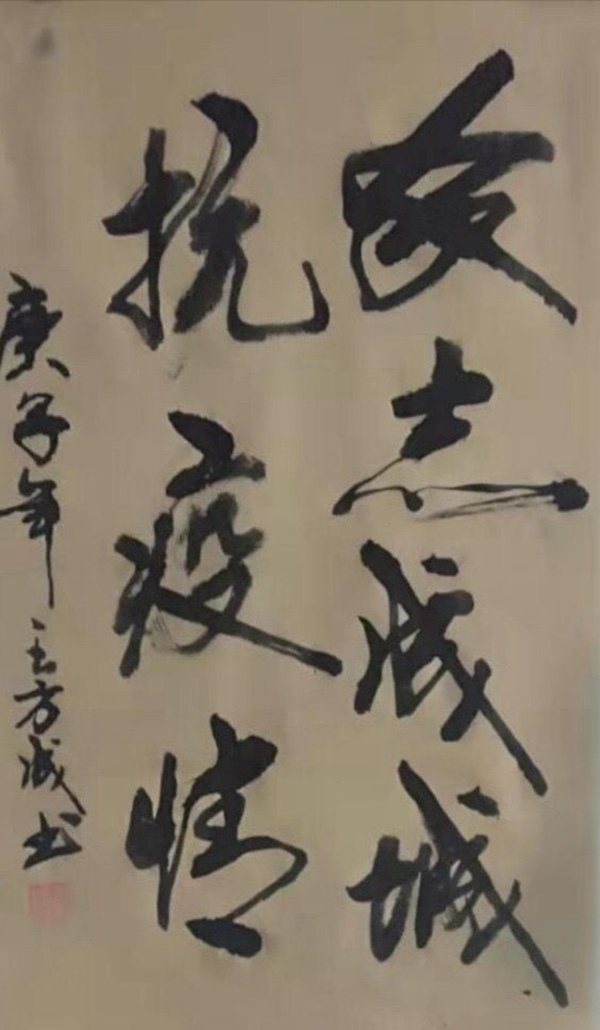 众志成城
抗疫情
庚子年王方成书